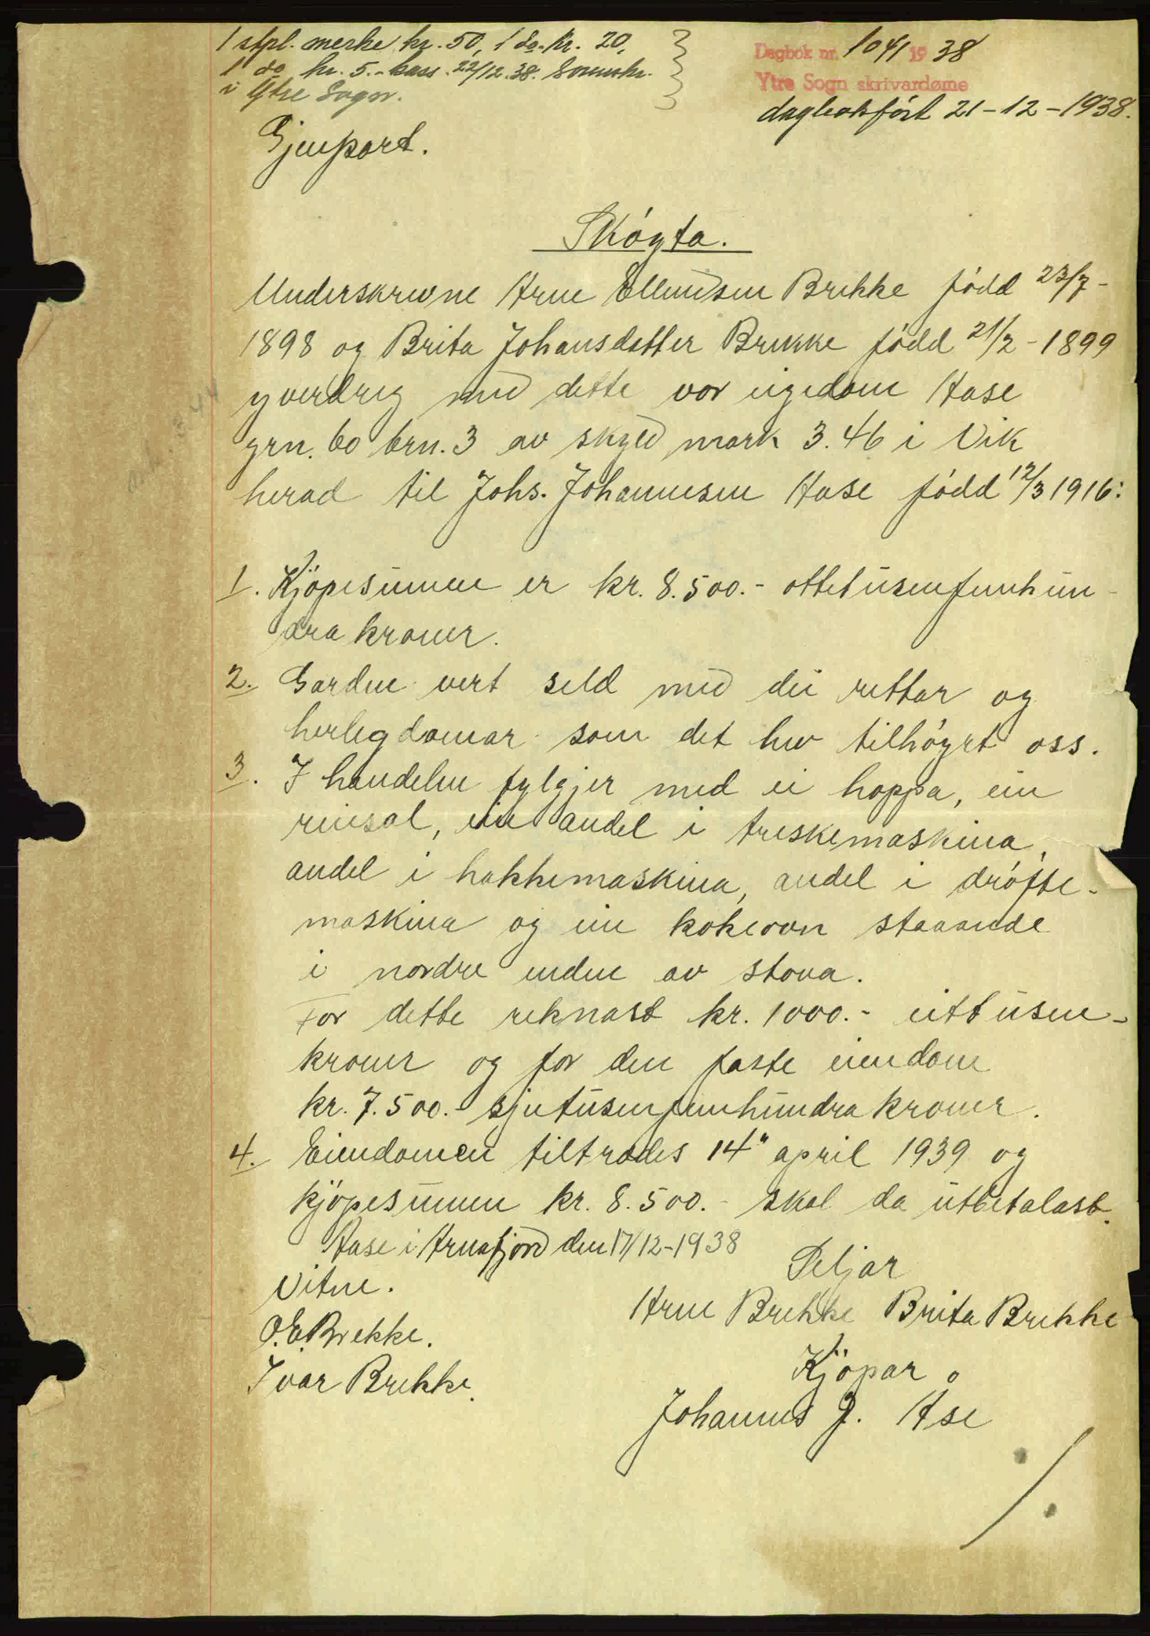 1 stpl. merke kr. 50, 1 do. kr. 20,
1 do kr. 5.- kass. 22/12.38. Sorenskr.
i Ytre Sogn.
Dagbok nr. 1041 1938
Ytre Sogn skrivardøme
dagbokført 21-12-1938.
Gjenpart.
Skøyta.
Underskrivne Arne Ellendsen Brekke född 23/7-
1898 og Brita Johansdatter Brekke född 21/2-1899
yverdreg med dette vor eigedom Aase
grn. 60 brn. 3 av skyld mark 3.46 i Vik
herad til Johs. Johannesen Aase född 12/3 1916:
1. Kjöpesummen er kr. 8.500.- ottetusenfemhun-
dra kroner.
2. Garden vert seld med dei rettar og
herlegdomar som det hev tilhöyrt oss.
3. I handelen fylgjer med ei hoppa, ein
reiesal, ein andel i treskemaskina,
andel i hakkemaskina, andel i dröfte-
maskina og ein kokeovn staaande
i nordre enden av stova.
For dette reknast kr. 1000.- eittusen-
kroner og for den faste eiendom
kr. 7.500.- sjutusenfemhundra kroner.
4. Eiendomen tiltrædes 14" april 1939 og
kjöpesummen kr. 8.500.- skal da utbetalast.
Aase i Arnafjord den 17/12-1938
Vitne.
O.E. Brekke.
Ivar Brekke.
Seljar
Arne Brekke Brita Brekke
Kjöpar
Johannes J. Åse